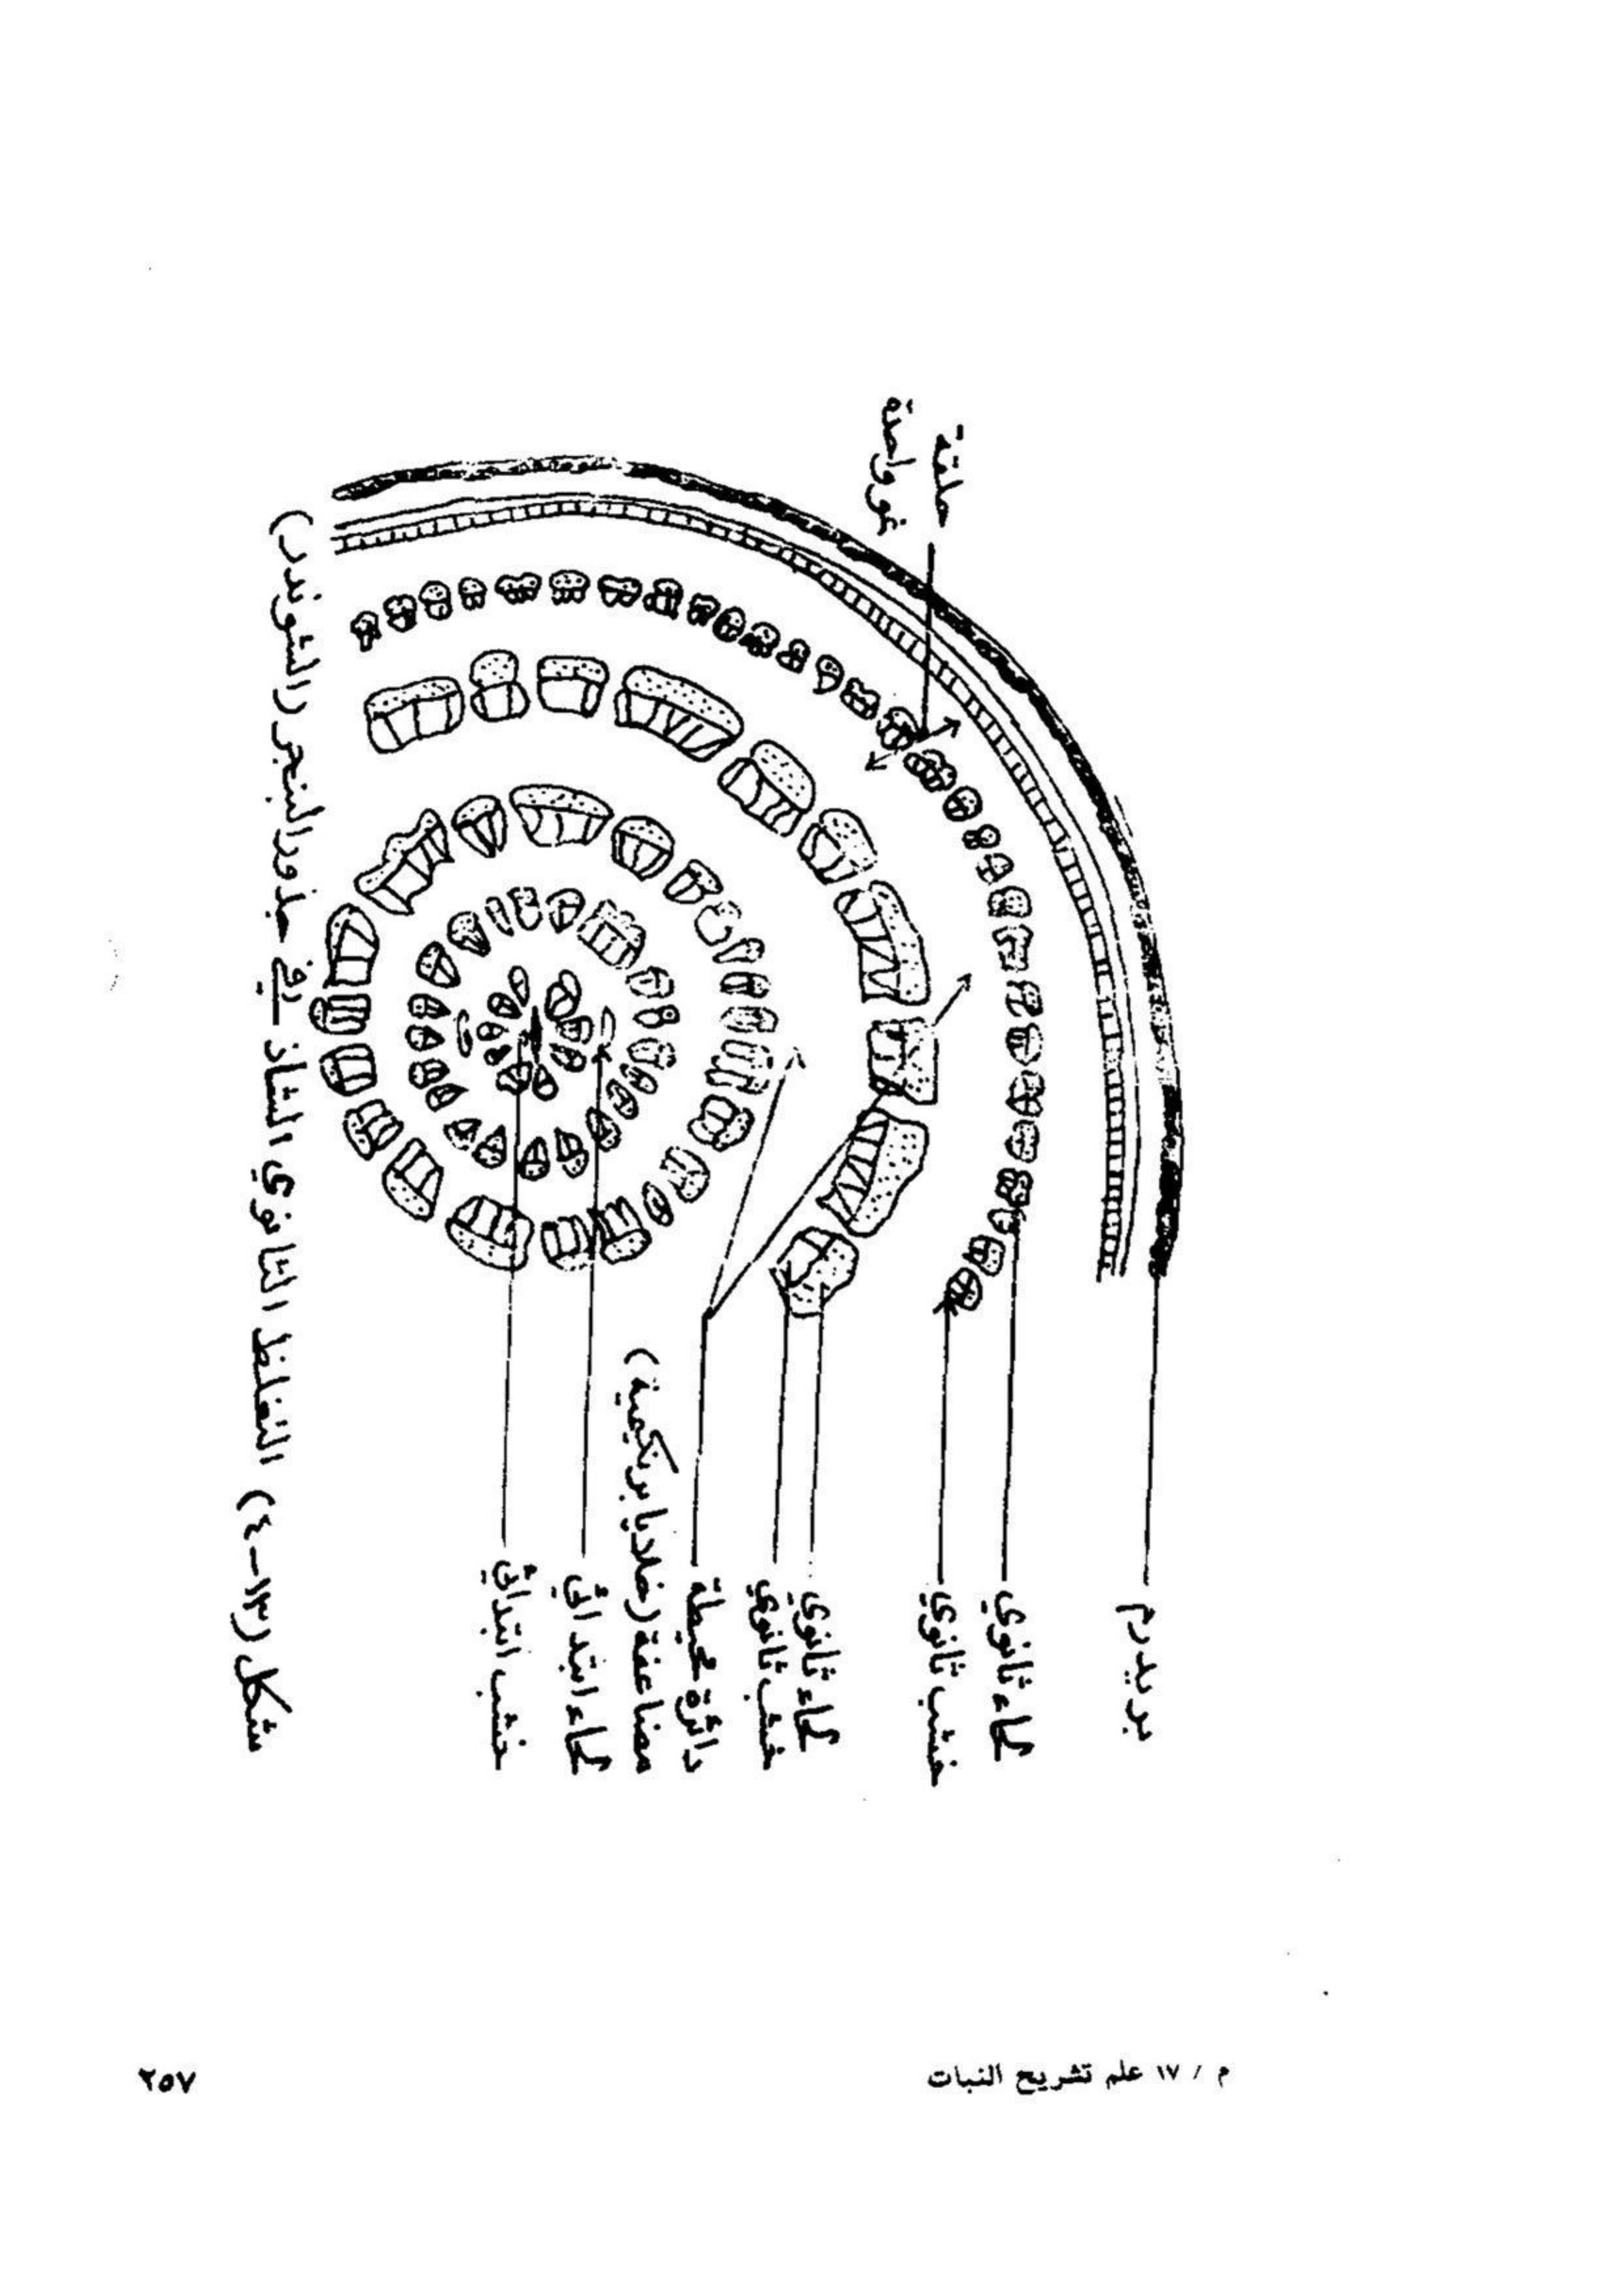 حلقة
نمو واحدة
بريدرم
لحاء ثانوي
خشب ثانوي
لحاء ثانوي
خشب ثانوي
دائرة محيطة
مضاعفة (خلايا برنكيمية)
لحاء ابتدائي
خشب ابتدائي
شكل (١٣-٤) التغلظ الثانوي الشاذ في جذور البنجر (الشوندر)
م / ١٧ علم تشريح النبات
٢٥٧